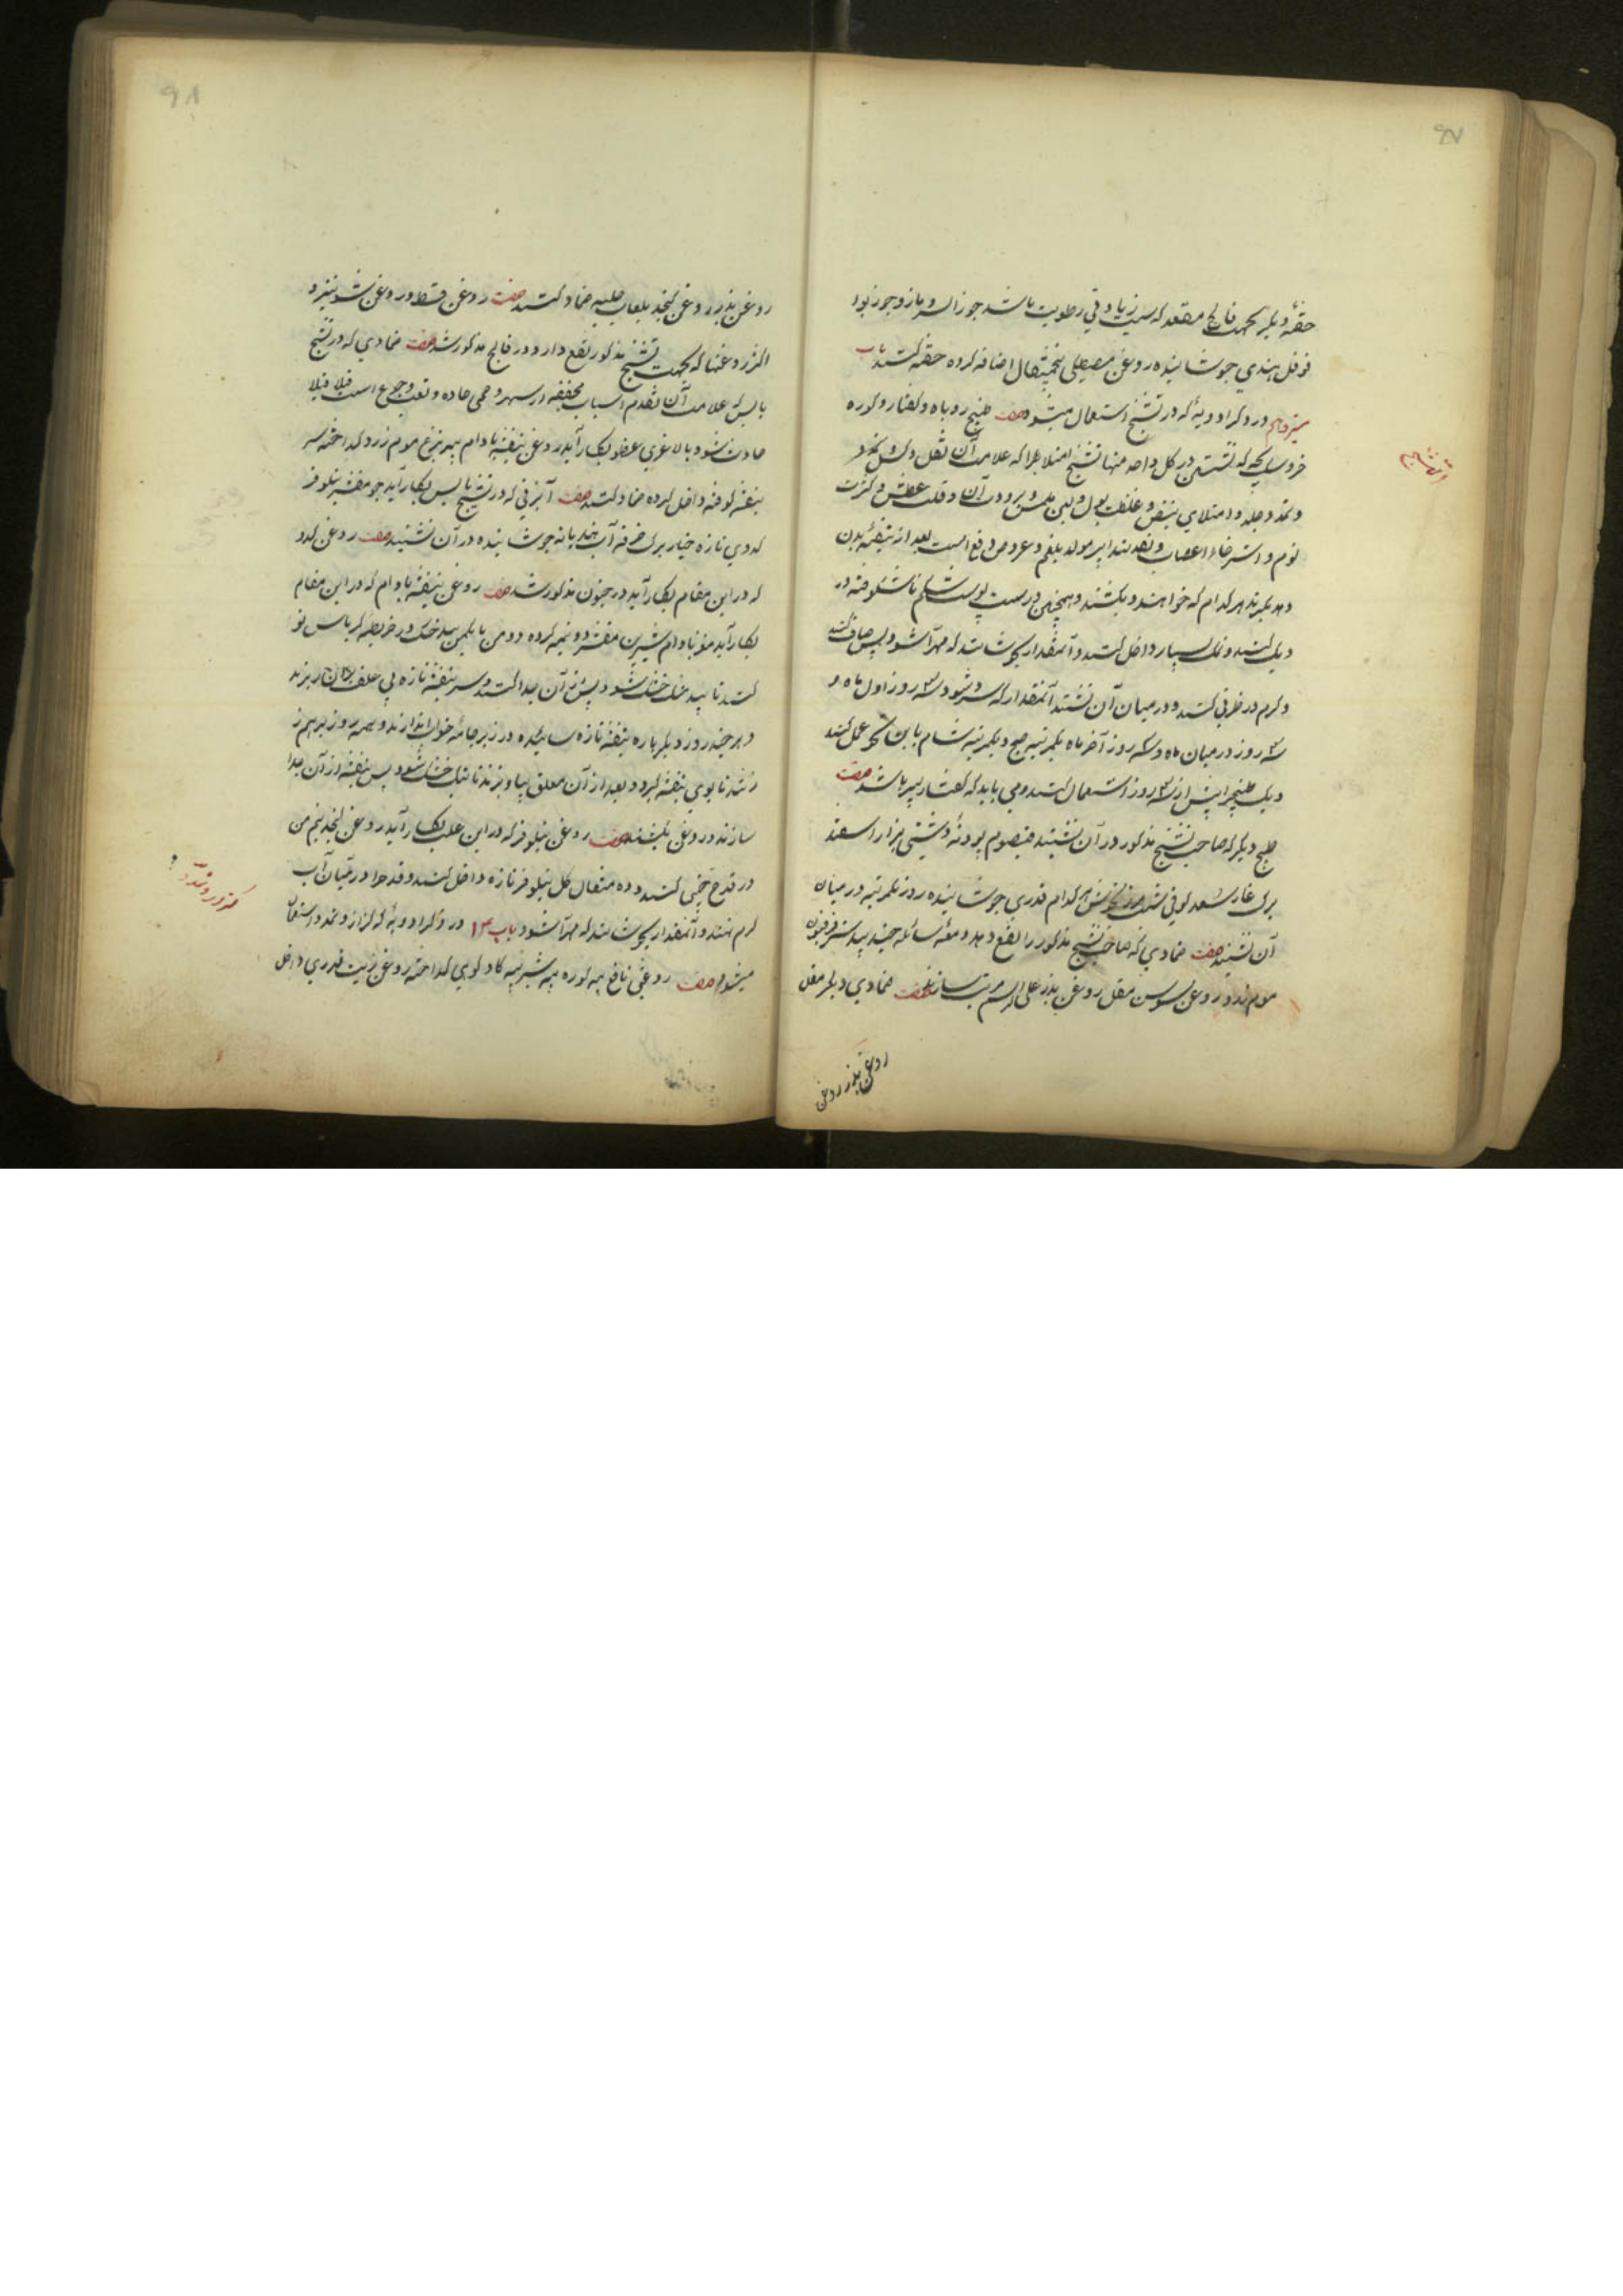 ۹۷
حقنهٔ دیگر بجهت فالج مقعد که سبب زیادتی رطوبت باشد جوز السرو مازو جوز بوا
فوفل هندی جوشانیده روغن مصطکی پنجمثقال اضافه کرده حقنه کنند باب
سیزدهم در ذکر ادویهٔ که در تشنج استعمال میشود صفت طبیخ روباه و کفتار و کوره
در کل واحد منها تشنج امتلا طرا که علامت آن ثقل و کسل و
و تمدد جلد و امتلای نبض و غلظت بول و لین ملمس و برودت آن و قلت عطش و کثرت
نوم و استرخاء اعصاب و تقدم تدابیر مولد بلغم و عروض دفع است بعد از تنقیهٔ بدن
دهد بگیرند هر کدام که خواهند و بکشند و همچنین درست پوست شکم ناشکوفته در
دیک کنند و نمک بسیار داخل کنند و آنمقدار بجوشانند که مهرا شود پس صاف کنند
و گرم در ظرفی کنند و در میان آن نشینند آنمقدار که سرد شود سه روز اول ماه و
سه روز در میان ماه و سه روز آخر ماه یکمرتبه صبح و یکمرتبه شام باین نحو عمل کنند
و یک طبیخ را بیش از سه روز استعمال کنند و می باید که کفتار پیر باشد صفت
طبخ دیگر که صاحب تشنج مذکور در آن نشیند قیصوم پودنهٔ دشتی
برک غار سعد کوفی شبت مرزنجوش هر کدام قدری جوشانیده روز یکمرتبه در میان
آن نشیند صفت ضمادی که صاحب تشنج مذکور را نفع دهد میعه سائله جند بیدستر فرفیون
موم زرد روغن سوسن مقل روغن بذر علی الرسم مرتب سازند صفت ضمادی دیگر مقل
روغن بذر روغن
ادویه تشنج
۹۸
روغن بذر روغن کنجد بلعاب حلبه ضماد کنند صفت روغن قسط و روغن شونیز و
اکثر روغنها که بجهت تشنج مذکور نفع دارد و در فالج مذکور شد صفت ضمادی که در تشنج
یابس که علامت آن تقدم اسباب مجففه از سهر و حمی حاده و تعب و جوع است قلیلا قلیلا
حادث شود با لاغری عضو بکار آید روغن بنفشه بادام پیه مرغ موم زرد گداخته
بنفشه کوفته داخل کرده ضماد کنند صفت آبزنی که در تشنج یابس بکار آید جو مقشر نیلوفر
کدوی تازه خیار برک خرفه آب جوشانیده در آن نشینند صفت روغن کدو
که در این مقام بکار آید در جنون مذکور شد صفت روغن بنفشه بادام که در این مقام
بکار آید مغز بادام شیرین مقشر دو نیمه کرده دو من با یکمن بید خشک در خریطهٔ کرباس نو
کنند تا بید خشک شود پس از آن جدا کنند و بر سر بنفشهٔ تازه بی علف جنان ریزند
و هر چند روز دیگر باره بنفشهٔ تازه سائیده در زیر جامهٔ خواب اندازند و همه روز برهم ز
نند تا بوی بنفشه گیرد و بعد از آن معلق بیاویزند تا نیک خشک شود پس بنفشه از آن جدا
سازند و روغن بکشند صفت روغن نیلوفر که در این علت بکار آید روغن کنجد پنجم من
در قدح چینی کنند و ده مثقال کل نیلوفر تازه داخل کنند و قدح را در میان آب
گرم نهند و آنمقدار بجوشانند که مهرا شود باب ۱۴ در ذکر ادویهٔ که کزاز و تمدد استعمال
میشود صفت روغنی نافع پیه کوره پیه شیر پیه کاو کوهی گداخته روغن زیت قدری داخل